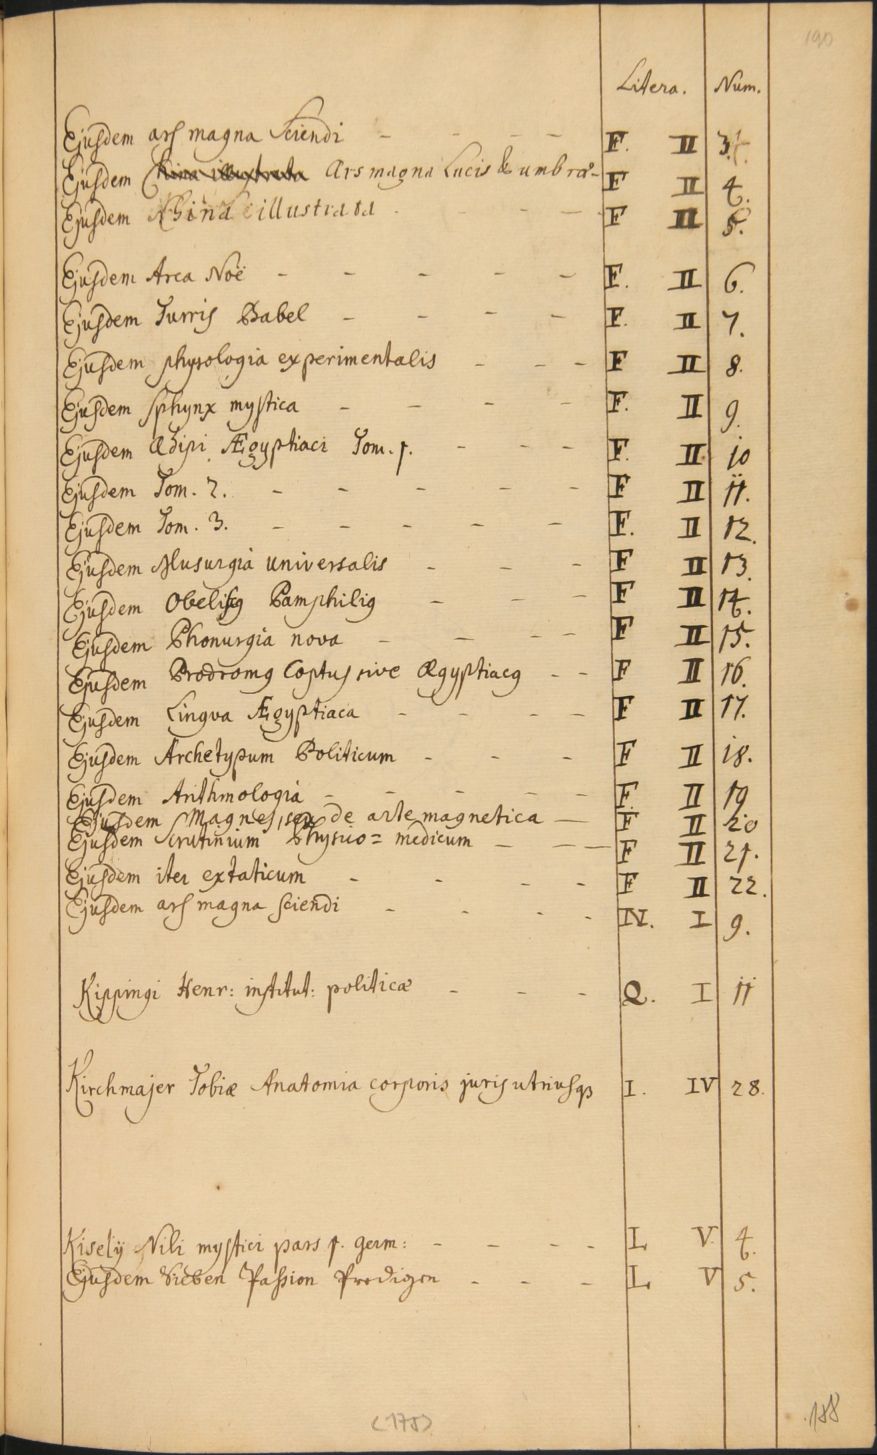 190
Litera. Num.
Ejusdem ars magna Sciendi - - - - F. II 3.
Ejusdem China illustrata Ars magna Lucis & umbræ - F II 4.
Ejusdem China illustrata - - - - F II 5.
Ejusdem Arca Noë - - - - - F. II 6.
Ejusdem Turris Babel - - - - F. II 7.
Ejusdem physologia experimentalis - - - F II 8.
Ejusdem Sphynx mystica - - - - F. II 9.
Ejusdem Œdipi Ægyptiaci Tom. 1. - - - F. II 10
Ejusdem Tom. 2. - - - - - F II 11.
Ejusdem Tom. 3. - - - - - F. II 12.
Ejusdem Musurgia universalis - - - F II 13.
Ejusdem Obeliscg Pamphilig - - - F II 14.
Ejusdem Phonurgia nova - - - - F II 15.
Ejusdem Prodromg Coptus sive Ægyptiacg - - F II 16.
Ejusdem Lingva Ægyptiaca - - - - F II 17.
Ejusdem Archetypum Politicum - - - F II 18.
Ejusdem Arithmologia - - - - - F. II 19
Ejusdem Magnes, seu de arte magnetica - F II 20
Ejusdem Scrutinium Physico= medicum - - - F II 21.
Ejusdem iter extaticum - - - - F II 22.
Ejusdem ars magna sciendi - - - - N. I 9.
Kippingi Henr: institut: politicæ - - - Q. I 11
Kirchmajer Tobiæ Anatomia corporis juris utriusq I. IV 28.
Kiselÿ Nili mystici pars 1. germ: - - - - L V 4.
Ejusdem Sieben Passion Predigen - - - L V 5.
(175)
188